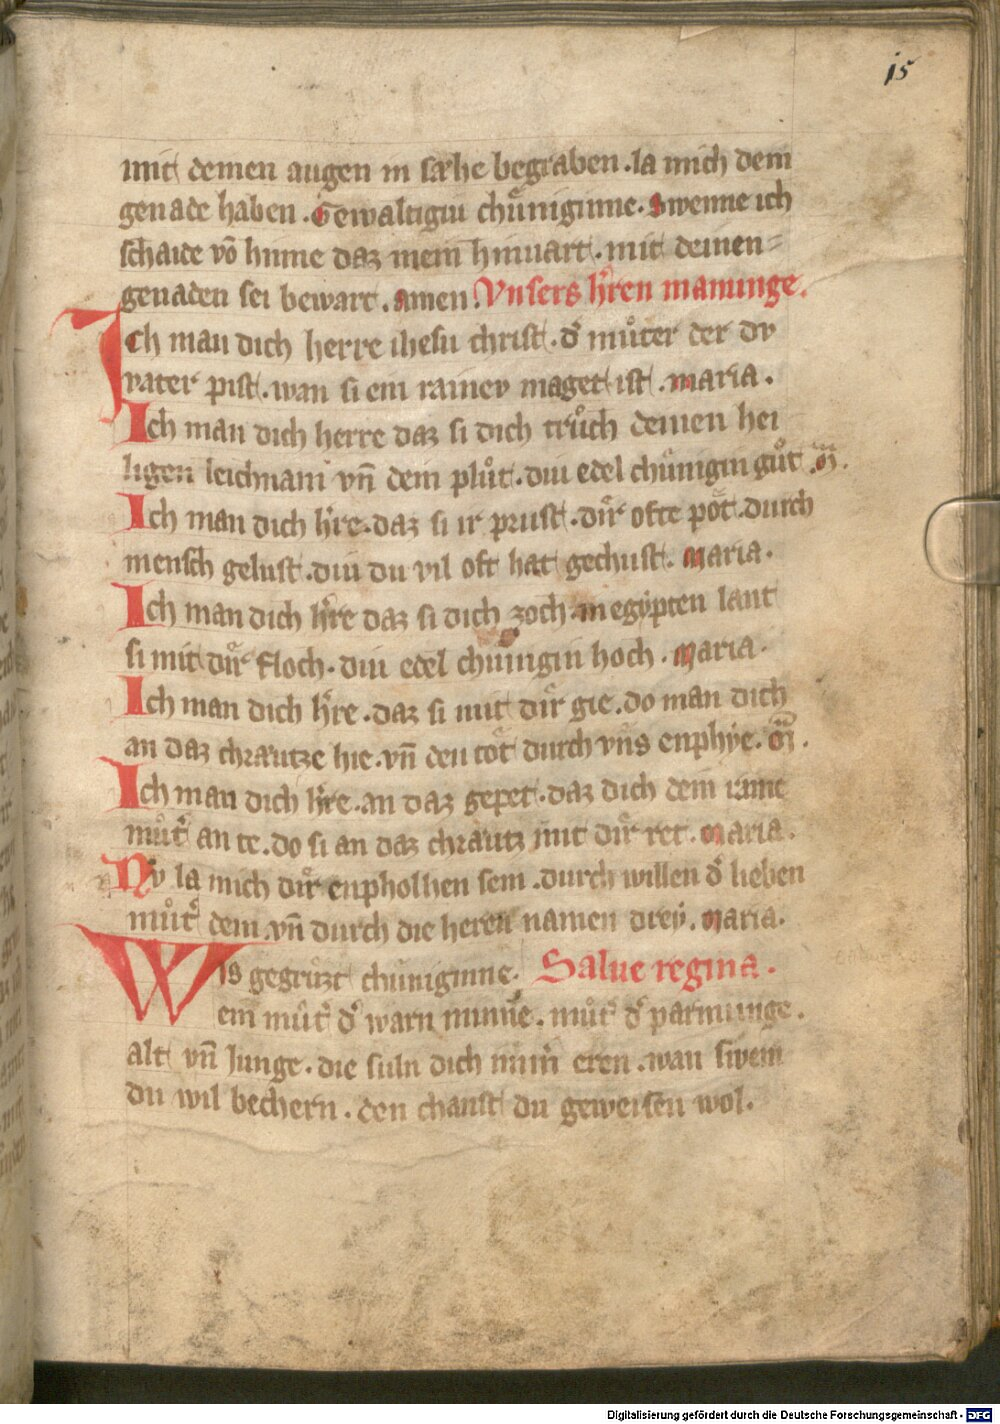 15
mit deinen augen in sæhe begraben . la mich dein
genade haben . Gewaltigiu chünginne . Swenne ich
schaide võ hinne daz mein hinuart . mit deinen=
genaden sei bewart . Amen . Vnsers h̾ren manunge .
Ich man dich herre ihesu christ . d̾ můter der dv
vater pist . wan si ein rainev maget ist . maria .
Ich man dich herre daz si dich trůch deinen hei
ligen leichnam vñ dein plůt . diu edel chünigin gůt . m̃ .
Ich man dich h̾re . daz si ir prust . dir ofte pot . durch
mensch gelust . diu du vil oft hat gechust . maria .
Ich man dich h̾re daz si dich zoch . in egypten lant
si mit dir floch . diu edel chunigin hoch . maria .
Ich man dich h̾re . daz si mit dir gie . do man dich
an daz chrautze hie . vñ den tot durch vns enphie . m̃ .
Ich man dich h̾re . an daz gepet . daz dich dein raine
můt̾ an te . do si an daz chrautz mit dir ret . maria .
Nv la mich dir enpholhen sein . durch willen d̾ lieben
můt̾ dein . vñ durch die heren namen drey . maria .
Wis gegrůzt chuniginne . Salue regina .
ein můt̾ d̾ warn minne . můt̾ d̾ parmunge .
alt vñ Junge . die suln dich im̾ eren . wan swem
du wil bechern . den chanst du geweisen wol .
Digitalisierung gefördert durch die Deutsche Forschungsgemeinschaft - DFG